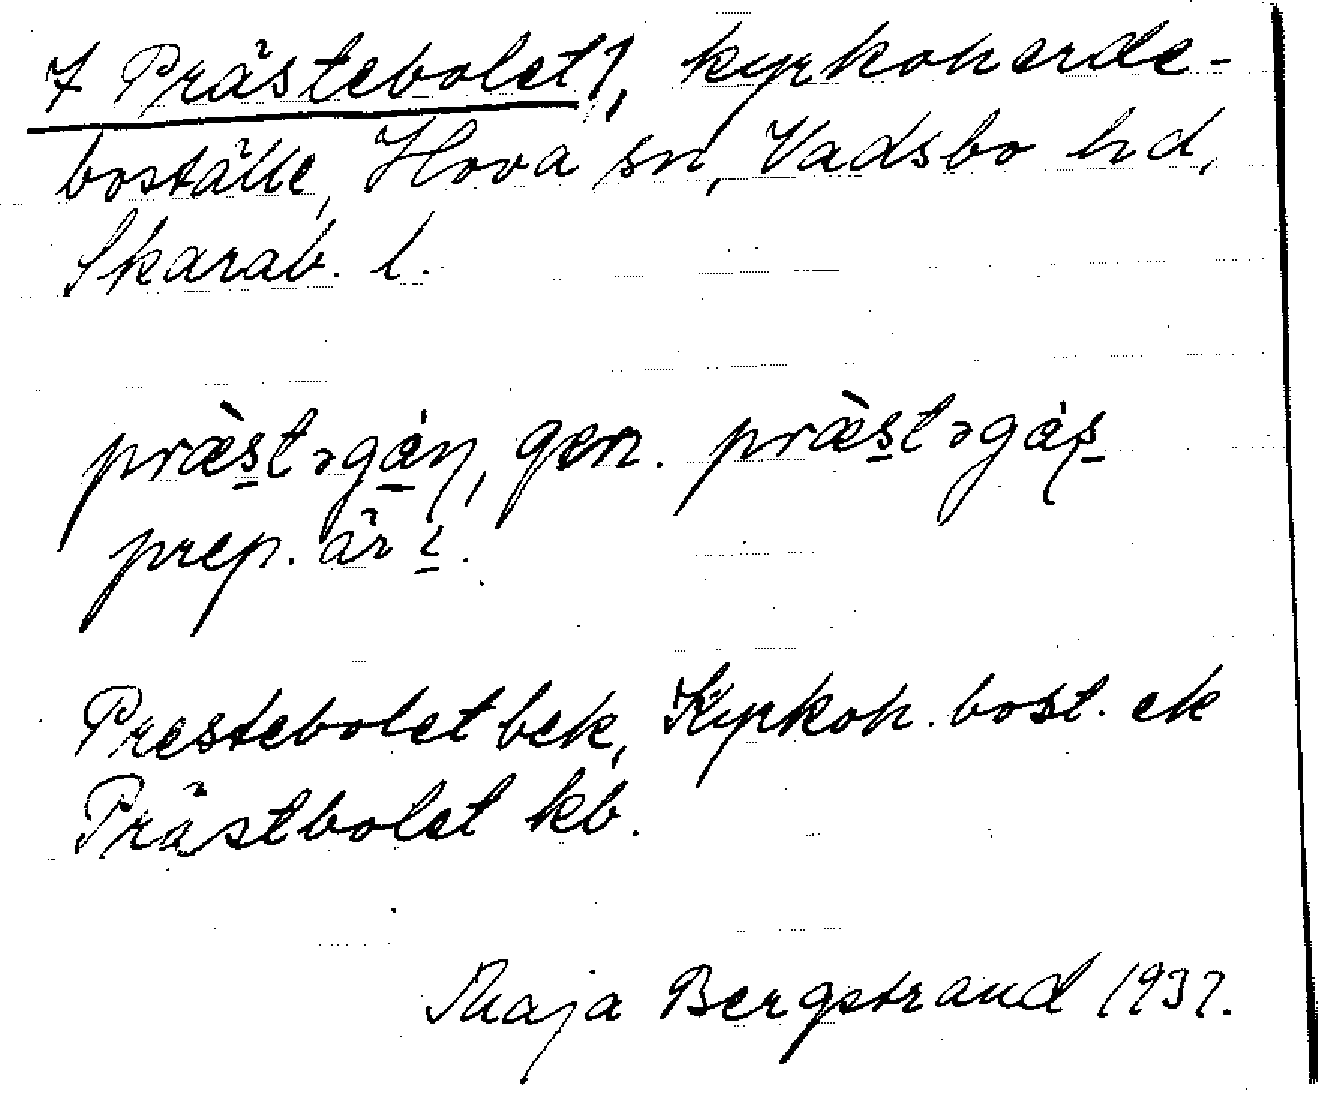 7 Prästebolet 1, kyrkoherde-
boställe, Hova sn, Vadsbo hd,
Skarab. l.
præ̀stəgáɳ, gen. præ̀stəgáʂ
prep. är i.
Prestebolet bek, Kyrkoh. bost. ek
Prästbolet kb.
Maja Bergstrand 1937.